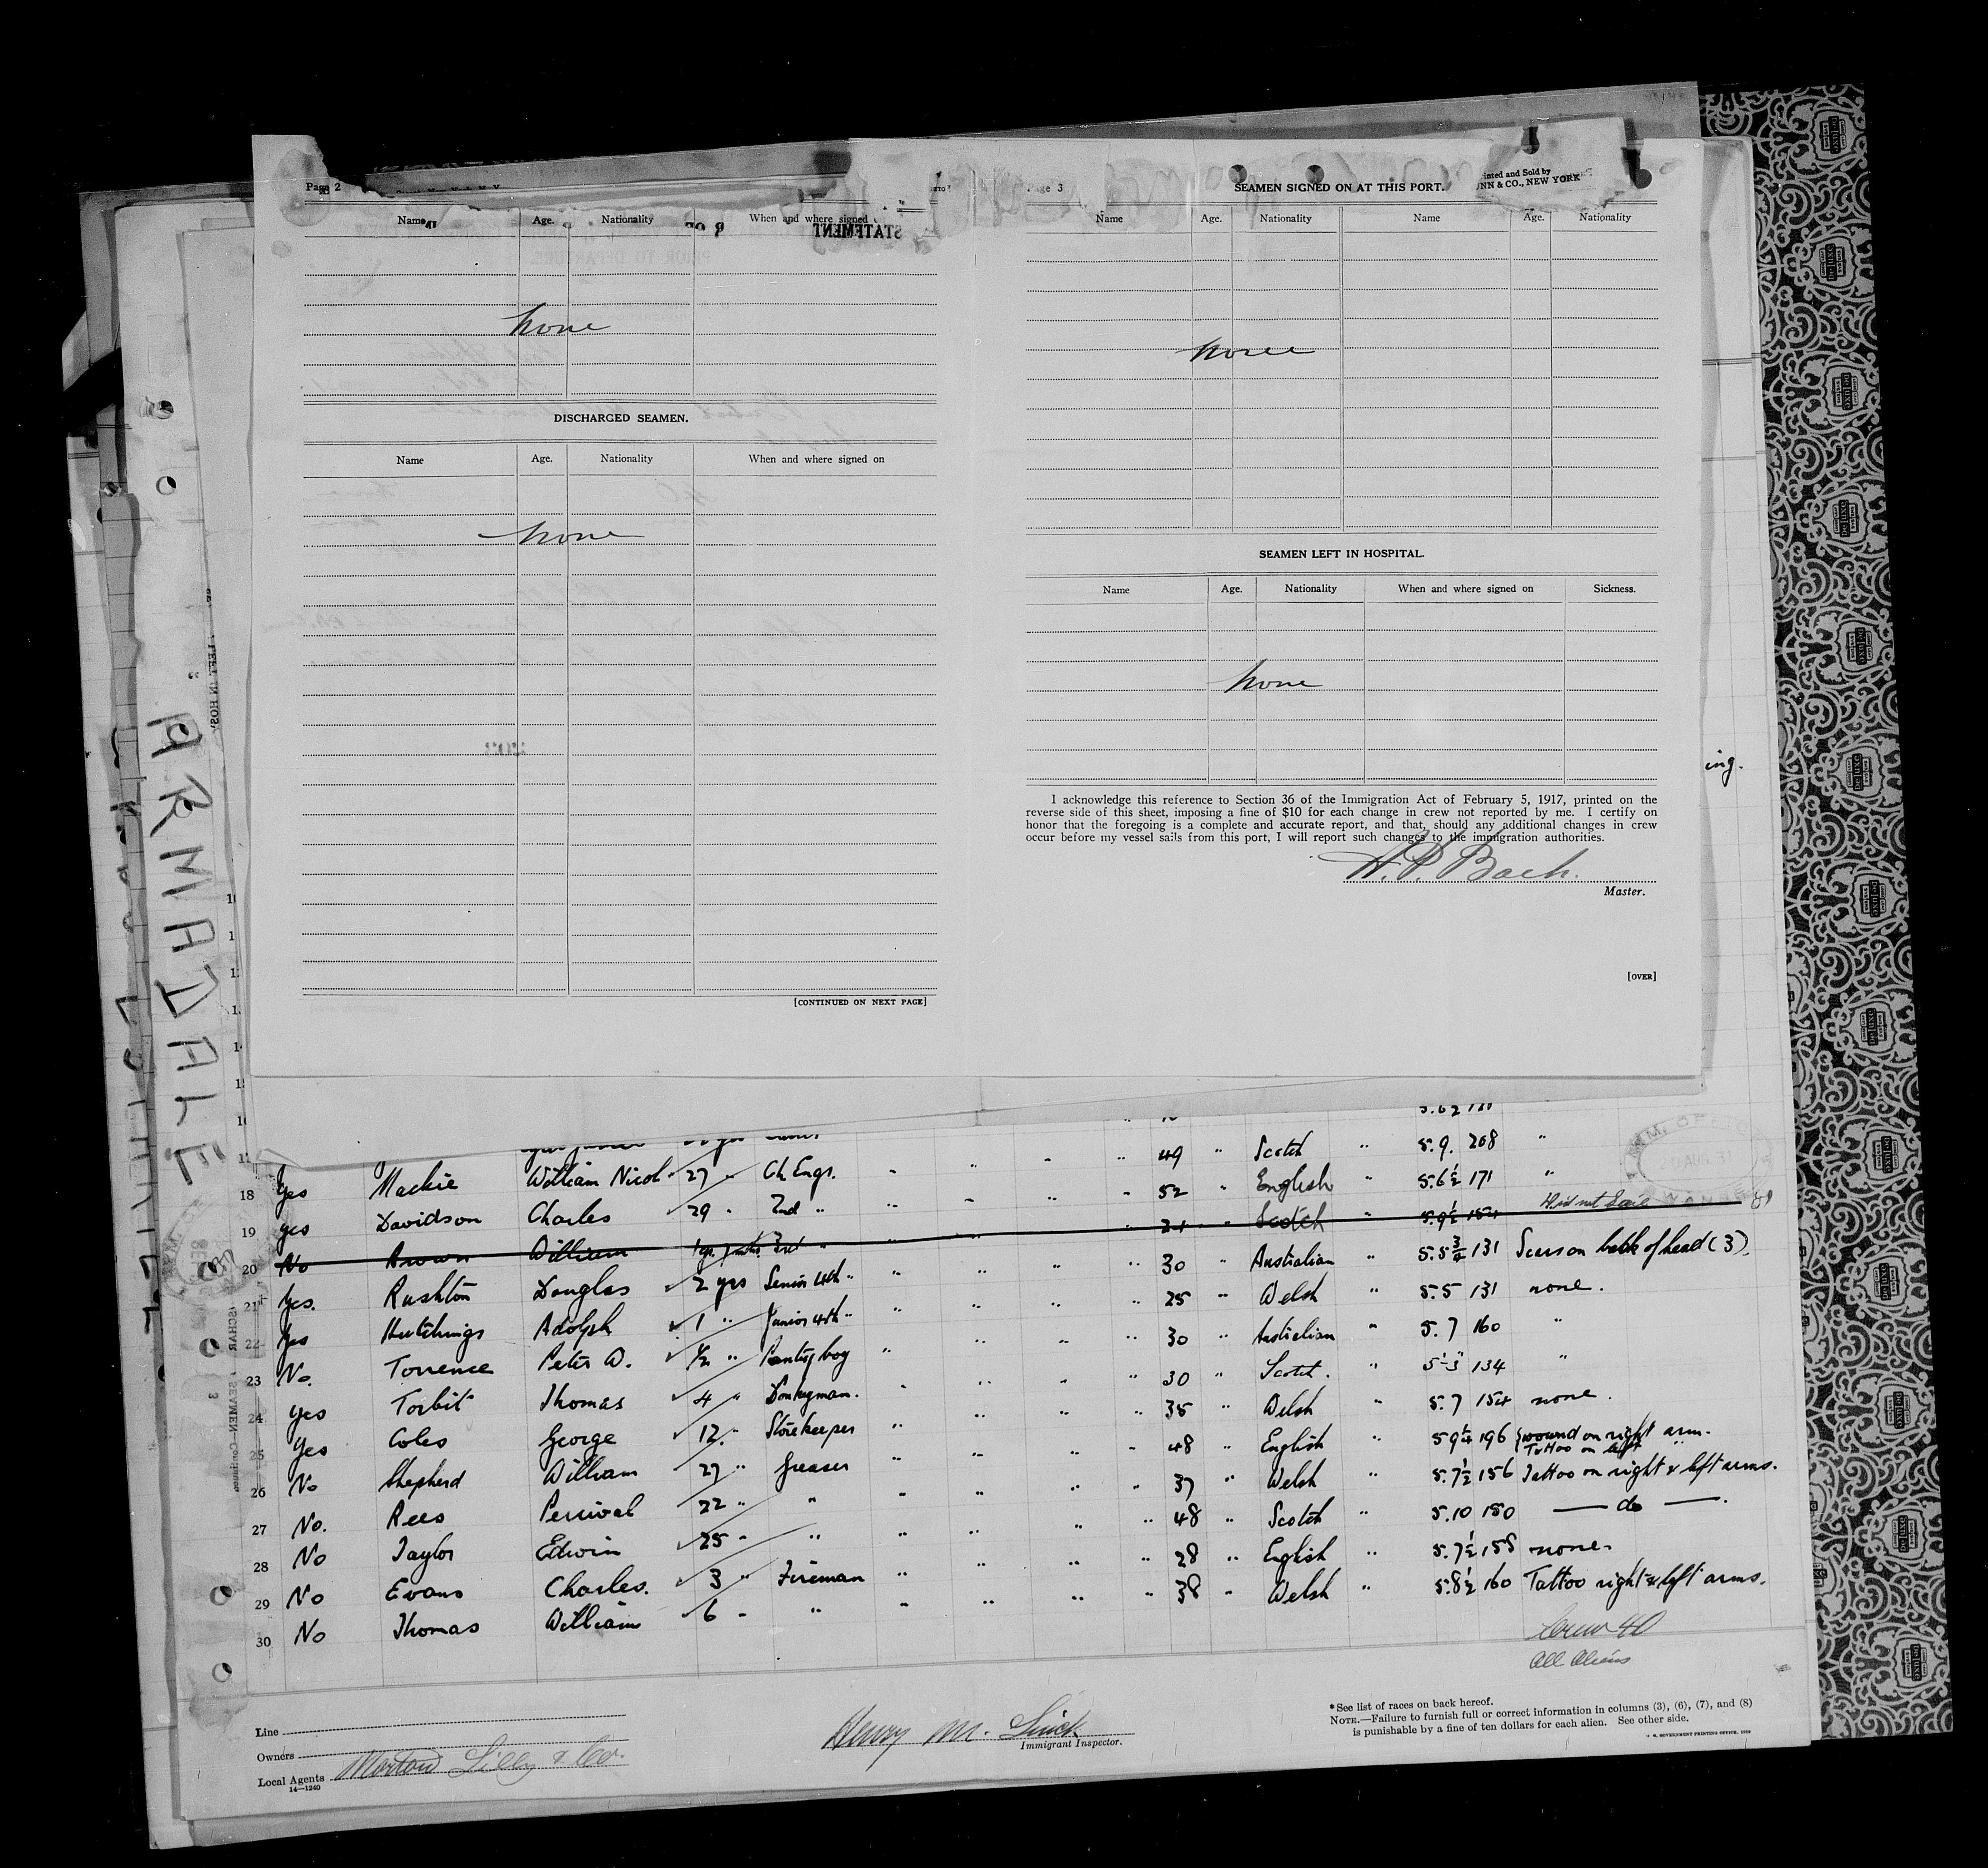 Page 2
Name Age. Nationality When and where signed
STATEMENT
None
DISCHARGED SEAMEN.
Name Age. Nationality When and where signed on
None
[CONTINUED ON NEXT PAGE]
Page 3
SEAMEN SIGNED ON AT THIS PORT.
Printed and Sold by
NN & CO., NEW YORK
Name Age. Nationality Name Age. Nationality
None
SEAMEN LEFT IN HOSPITAL.
Name Age. Nationality When and where signed on Sickness.
None
I acknowledge this reference to Section 36 of the Immigration Act of February 5, 1917, printed on the
reverse side of this sheet, imposing a fine of $10 for each change in crew not reported by me. I certify on
honor that the foregoing is a complete and accurate report, and that, should any additional changes in crew
occur before my vessel sails from this port, I will report such changes to the immigration authorities.
H. P. Bach.
Master.
[OVER]
ing.
ARMADALE
18 Yes Mackie William Nicol 27 " Ch Engr. " " " " 49 " Scotch " 5.9. 208 "
19 yes Davidson Charles 29 " 2nd " " " " " 52 " English " 5.6½ 171 "
20 No Brown William 3rd " Scotch " 5.9½ 154 Did not Sail
21 Yes. Rushton Douglas 2 yrs Senior 4th " " " " " 30 " Australian " 5.5¾ 131 Scars on back of head (3).
22 Yes Hutchings Adolph 1 " Junior 4th " " " " " 25 " Welsh " 5.5 131 none.
23 No. Torrence Peter A. ½ " Pantry boy " " " " 30 " Australian " 5.7 160 "
24 yes Torbit Thomas 4 " Donkeyman. " " " " 30 " Scotch. " 5-3 134 "
25 Yes Coles George 12. " Storekeeper " " " " 35 " Welsh " 5.7 154 none.
26 No Shepherd William 27 " Greaser " " " " 48 " English " 5 9¼ 196 wound on right arm.
Tattoo on left "
27 No. Rees Percival 22 " " " " " " 37 " Welsh " 5.7½ 156 Tattoo on right & left arms.
28 No Taylor Edwin 25 " " " " " " 48 " Scotch " 5.10 180 — do —.
29 No Evans Charles. 3 " Fireman " " " " 28 " English " 5.7½ 158 none.
30 No Thomas William 6 " " " " " " 38 " Welsh " 5.8½ 160 Tattoo right & left arms.
Crew 40
All Aliens
Line
Owners
Local Agents Morton Lilly & Co.
14—1240
Henry M.
Immigrant Inspector.
* See list of races on back hereof.
NOTE.—Failure to furnish full or correct information in columns (3), (6), (7), and (8)
is punishable by a fine of ten dollars for each alien. See other side.
U. S. GOVERNMENT PRINTING OFFICE